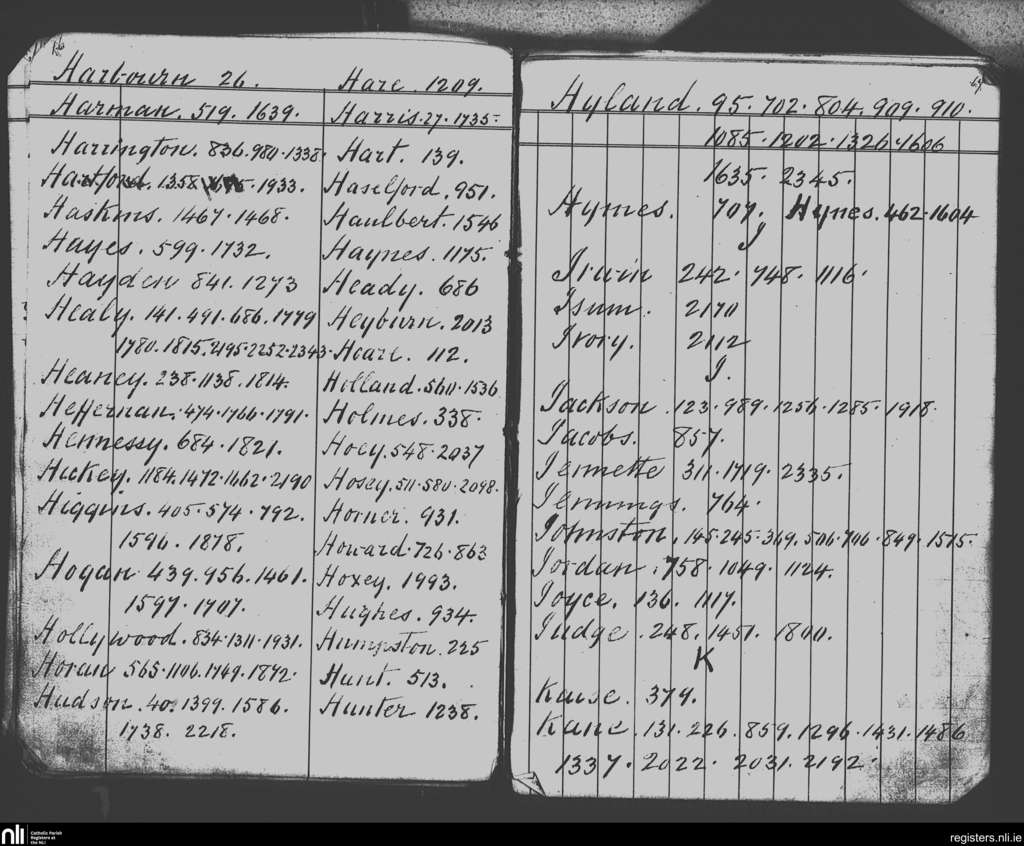 Harbourn 26.
Harman. 519. 1639.
Harrington. 836. 980. 1338.
Hartford. 1358. 1933.
Haskins. 1467. 1468.
Hayes. 599. 1732.
Hayden 841. 1273
Healy. 141. 491. 686. 1779
1780. 1815. 2195. 2252. 2343.
Heaney. 238. 1138. 1814.
Heffernan. 474. 1766. 1791.
Hennessy. 684. 1821.
Hickey. 1184. 1472. 1662. 2190
Higgins. 405. 574. 792.
1596. 1878.
Hogan 439. 956. 1461.
1597. 1707.
Hollywood. 834. 1311. 1931.
Horan 565. 1106. 1749. 1872.
Hudson. 40. 1399. 1586.
1738. 2218.
Hare. 1209.
Harris. 27. 1735.
Hart. 139.
Haselford. 951.
Haulbert. 1546
Haynes. 1175.
Heady. 686
Heyburn. 2013
Heare. 112.
Holland. 560. 1536
Holmes. 338.
Hoey. 548. 2037
Hosey. 511. 580. 2098.
Horner. 931.
Howard. 726. 863
Hoxey. 1993.
Hughes. 934.
Humpston. 225
Hunt. 513.
Hunter 1238.
Hyland. 95. 702. 804. 909. 910.
1085. 1202. 1326. 1606
1635. 2345.
Hymes. 707. Hynes. 462. 1604
I
Irwin 242. 748. 1116.
Isum. 2170
Ivory. 2112
J.
Jackson. 123. 989. 1256. 1285. 1918.
Jacobs. 857.
Jennette 311. 1719. 2335.
Jennings. 764.
Johnston. 145. 245. 369. 506. 706. 849. 1575.
Jordan. 758. 1049. 1124.
Joyce. 136. 1117.
Judge. 248. 1451. 1800.
K
Kaise. 379.
Kane. 131. 226. 859. 1296. 1431. 1486
1337. 2022. 2031. 2192.
nli
Catholic Parish
Registers at
the NLI
registers.nli.ie